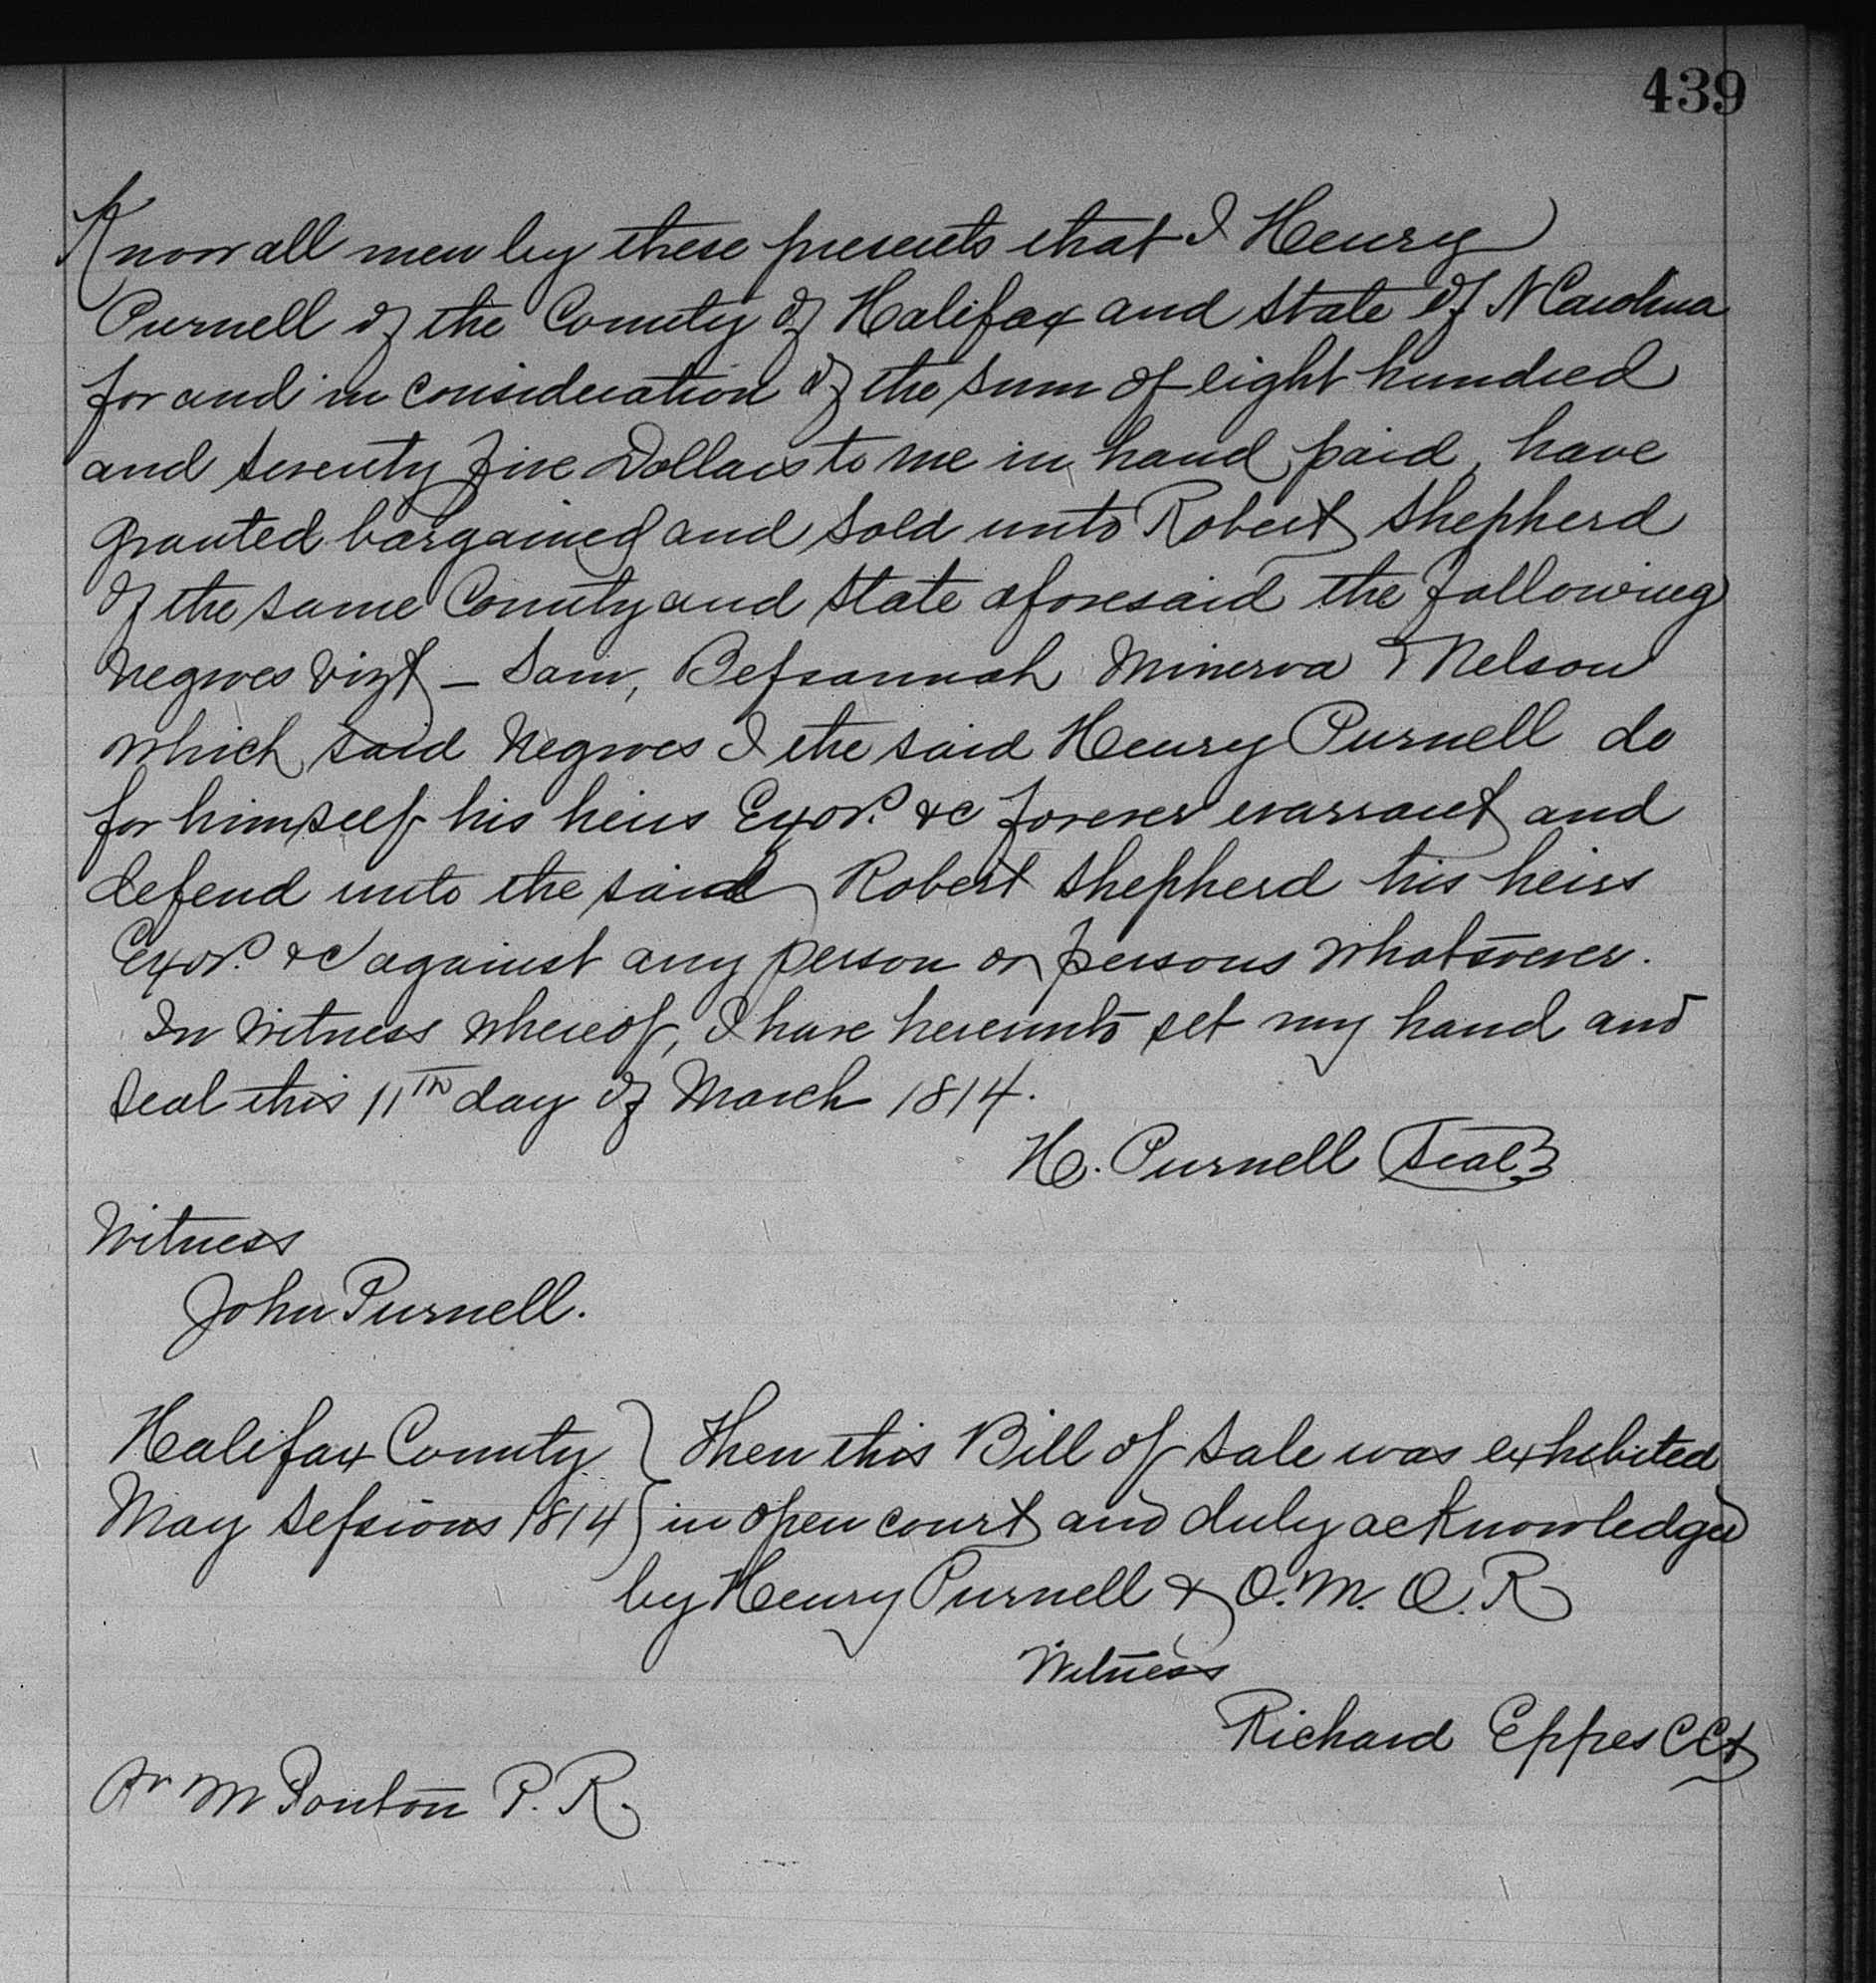 439
Know all men by these presents that I Henry
Purnell of the County of Halifax and State of N Carolina
for and in consideration of the sum of eight hundred
and seventy five Dollars to me in hand paid, have
granted bargained and sold unto Robert Shepherd
of the same County and State aforesaid the following
Negroes Vizt – Sam, Befsannah Minerva & Nelson
which said Negroes I the said Henry Purnell do
for himself his heirs Exors. &c forever warrant and
defend unto the said Robert Shepherd his heirs
Exors. &c against any person or persons whatsoever.
In Witness whereof, I have hereunto set my hand and
seal this 11th day of March 1814.
H. Purnell Seal
Witness
John Purnell.
Halifax County } Then this Bill of Sale was exhibited
May Sefsions 1814 } in open court and duly acknowledged
by Henry Purnell & O. M. O. R
Witness
Richard Eppes CCt
M Ponton P. R.